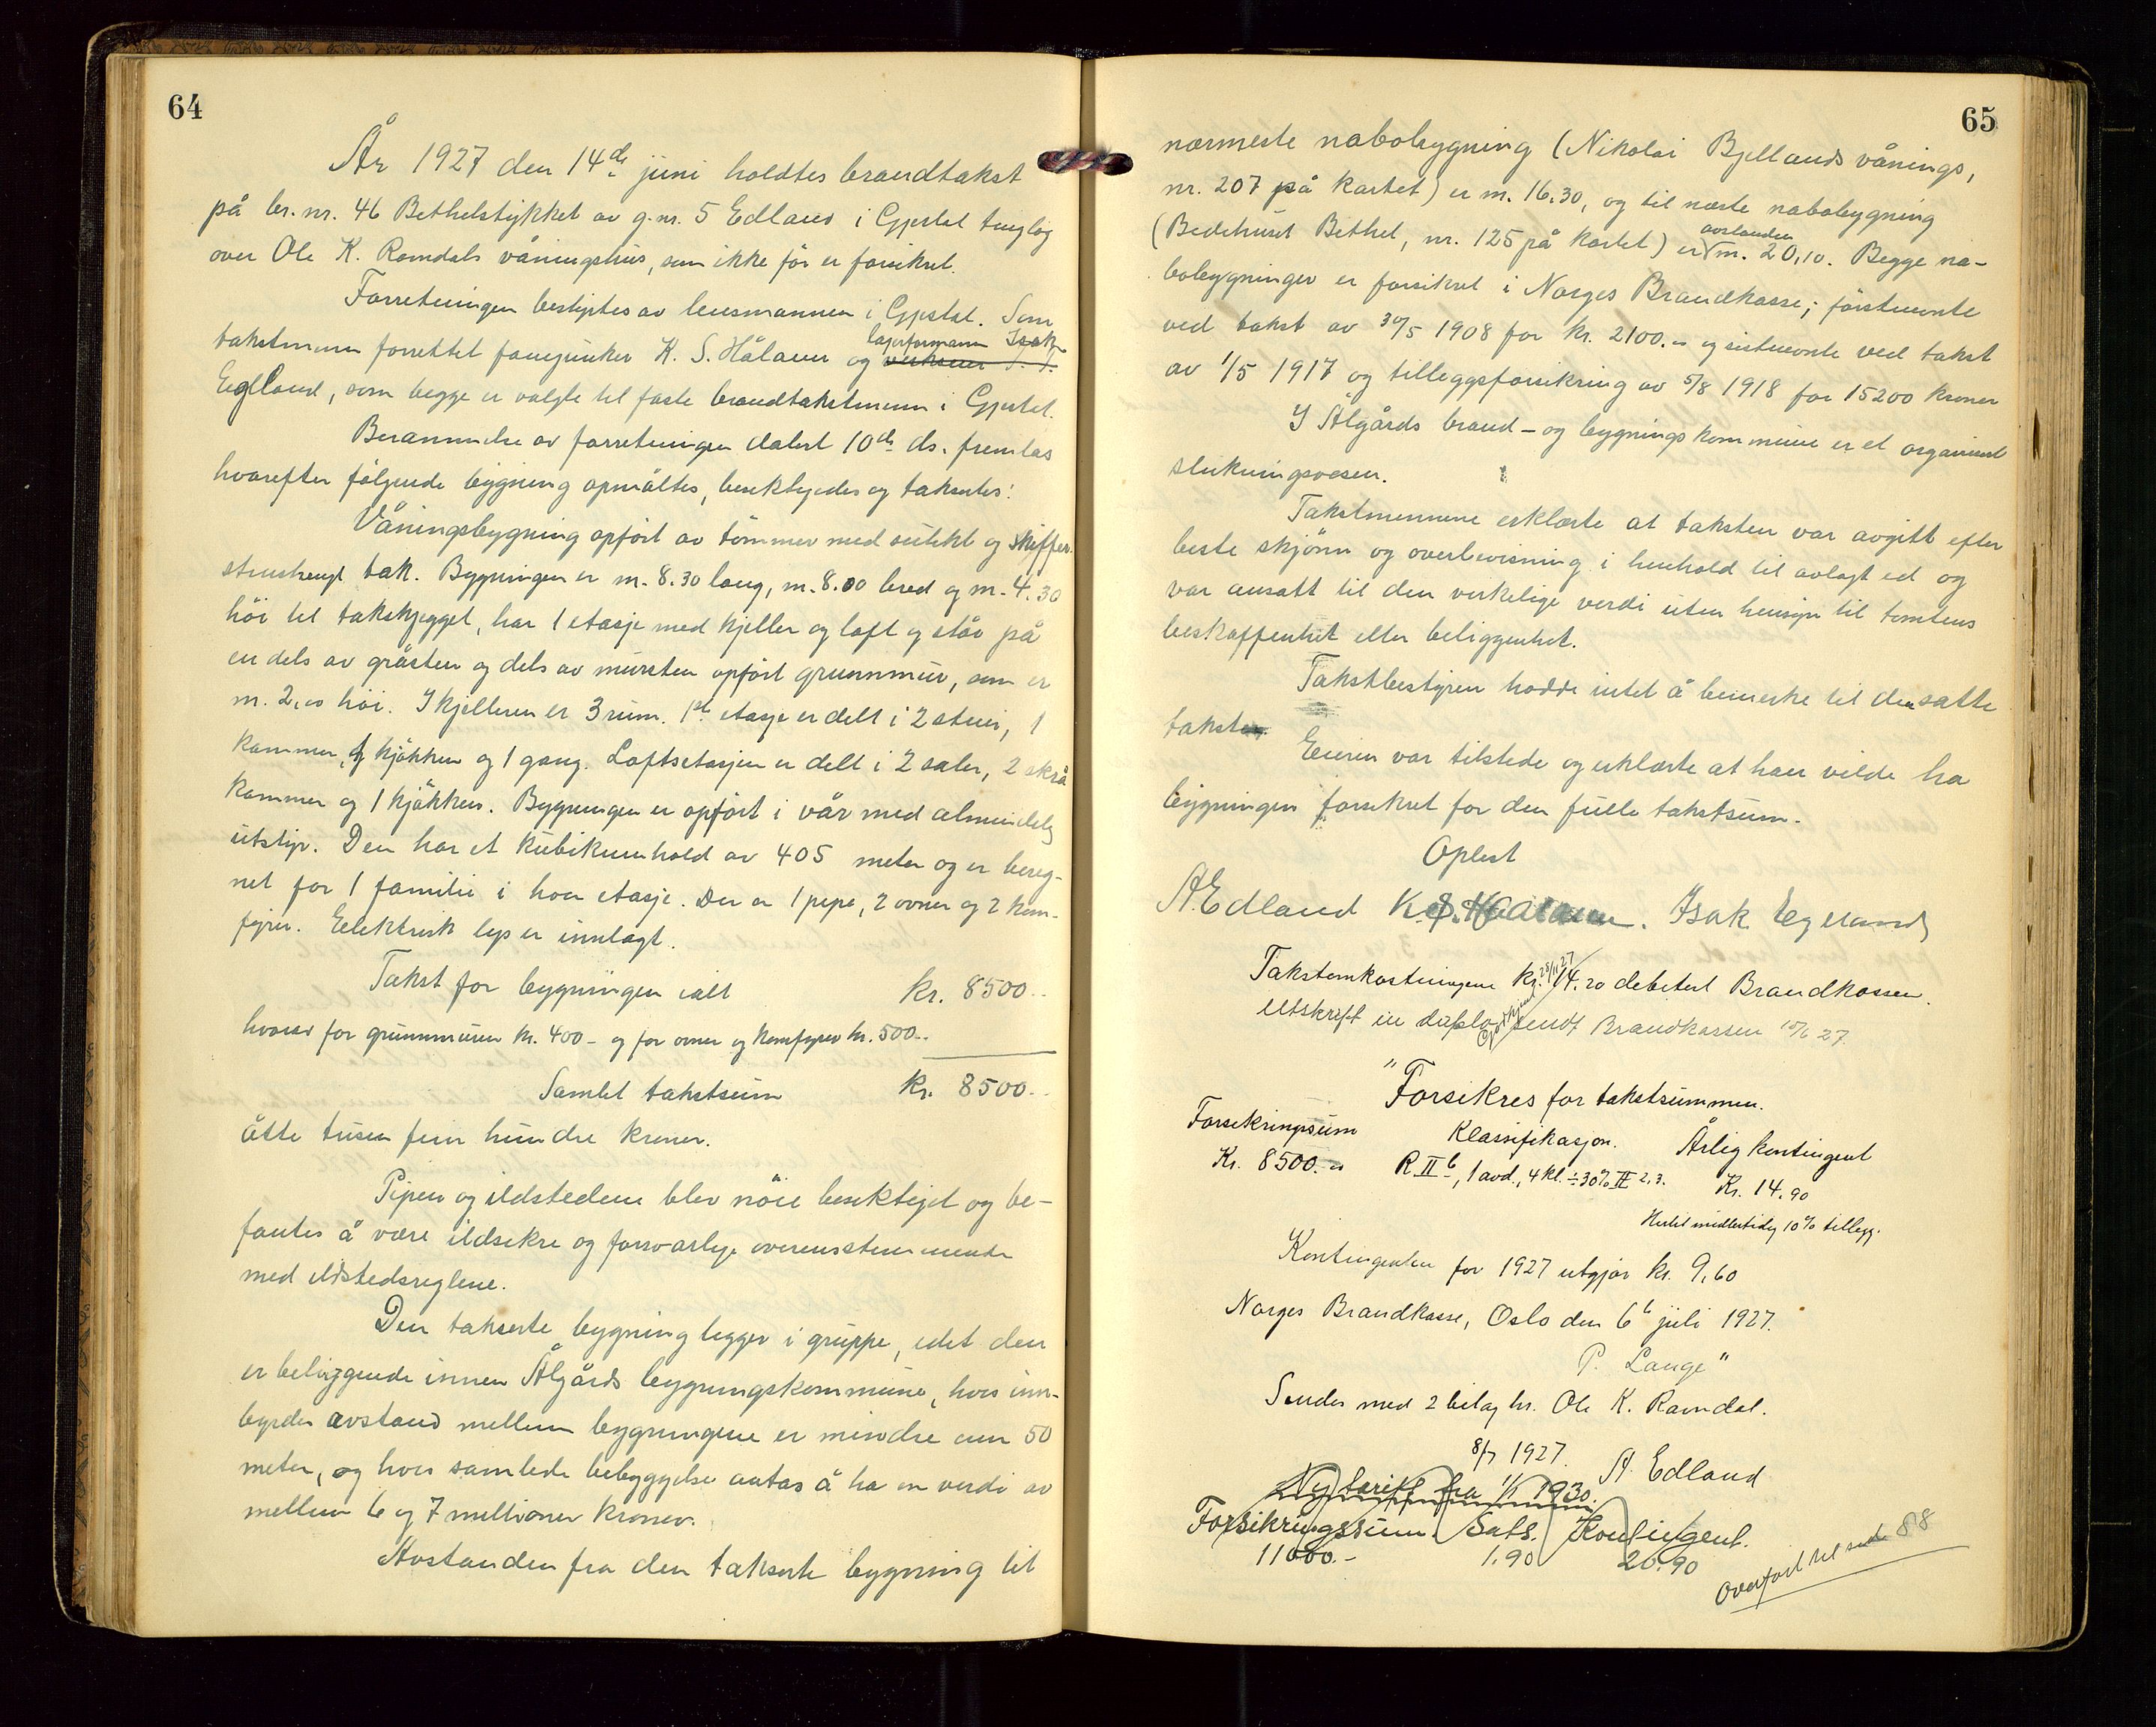 64
År 1927 den 14de juni holdtes brandtakst
på br. nr. 46 Bethelstykket av g.nr. 5 Edland i Gjestal tinglag
over Ole K. Ramdals våningshus, som ikke før er forsikret.
Forretningen bestyrtes av lensmannen i Gjestal. Som
takstmenn forrettet fanejunker K. S. Håland og verkseier lagerformann Isak
Egeland, som begge er valgte til faste brandtakstmenn i Gjestal.
Berammelse av forretningen datert 10de ds. fremlas
hvorefter følgende bygning opmåltes, besektigedes og taksertes:
Våningsbygning opført av tømmer med sutekt og skiffer-
stenshengt tak. Bygningen er m. 8.30 lang, m. 8.00 bred og m. 4.30
høi til takskjegget, har 1 etasje med kjeller og loft og står på
en dels av gråsten og dels av mursten opført grunnmur, som er
m. 2,00 høi. I kjelleren er 3 rum. 1ste etasje er delt i 2 stuer, 1
kammer, 1 kjøkken og 1 gang. Loftsetasjen er delt i 2 saler, 2 skrå
kammer og 1 kjøkken. Bygningen er opført i vår med almindelig
utstyr. Den har et kubikkinnhold av 405 meter og er bereg-
net for 1 familie i hver etasje. Der er 1 pipe, 2 ovner og 2 kom-
fyrer. Elektrisk lys er innlagt.
Takst for bygningen ialt kr. 8500..
hvorav for grunnmuren kr. 400 - og for ovner og komfyrer kr. 500..
Samlet takstsum kr. 8500..
åtte tusen fem hundre kroner.
Pipen og ildstedene blev nöie besektiget og be-
fantes å være ildsikre og forsvarlige overensstemmende
med ildstedsreglene.
Den takserte bygning ligger i gruppe, idet den
er beliggende innen Ålgårds bygningskommune, hvis inn-
byrdes avstand mellem bygningene er mindre enn 50
meter, og hvis samlede bebyggelse antas å ha en verdi av
mellem 6 og 7 millioner kroner.
Avstanden fra den takserte bygning til
65
nærmeste nabobygning (Nikolai Bjellands vånings,
nr. 207 på kartet) er m. 16.30, og til næste nabobygning
(Bedehuset Bethel, nr. 125 på kartet) er avstanden m. 20,10. Begge na-
bobygninger er forsikret i Norges Brandkasse; førstnevnte
ved takst av 30/5 1908 for kr. 2100.00 og sistnevnte ved takst
av 1/5 1917 og tilleggsforsikring av 5/8 1918 for 15200 kroner
I Ålgårds brand- og bygningskommune er et organisert
slukningsvesen.
Takstmennene erklærte at taksten var avgitt efter
beste skjønn og overbevisning i henhold til avlagt ed og
var ansatt til den virkelige verdi uten hensyn til tomtens
beskaffenhet eller beliggenhet.
Takstbestyren hadde intet å bemerke til den satte
takst.
Eieren var tilstede og erklærte at han vilde ha
bygningen forsikret for den fulle takstsum.
Oplest
A. Edland K. S. Haaland. Isak Egeland
Takstomkostningene kr. 14.20 debitert Brandkassen.
25/11 27
Utskrift in duplo sendt Brandkassen 15/6 27.
"Forsikres for takstsummen.
Forsikringssum Klassifikasjon. Årlig kontingent
Kr. 8500.00 R. II b, 1 avd., 4 kl. ÷ 30% II 2.3. Kr. 14.90
Hertil midlertidig 10% tillegg.
Kontingenten for 1927 utgjør kr. 9,60
Norges Brandkasse, Oslo den 6te juli 1927.
P. Lange"
Sendes med 2 bilag hr. Ole K. Ramdal.
8/7 1927. A. Edland
Ny tariff fra 1/1 1930.
Forsikringssum. Sats. Kontingent.
11000.- 1.90 20.90
Overført til side 88